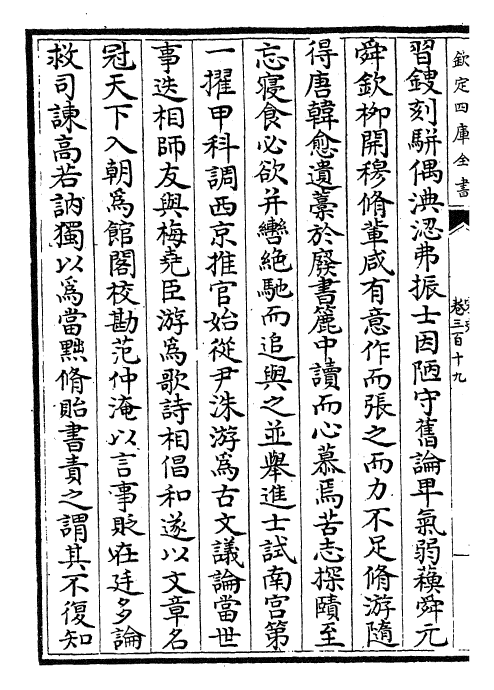 欽定四庫全書
宋史
卷三百十九
習鎪刻駢偶淟涊弗振士因陋守舊論卑氣弱蘇舜元
舜欽栁開穆脩輩咸有意作而張之而力不足脩游隨
得唐韓愈遺藁於廢書簏中讀而心慕焉苦志探賾至
忘寢食必欲并轡絶馳而追與之並舉進士試南宫第
一擢甲科調西京推官始從尹洙游為古文議論當世
事迭相師友與梅堯臣游為歌詩相倡和遂以文章名
冠天下入朝為館閣校勘范仲淹以言事貶在廷多論
救司諫髙若訥獨以為當黜脩貽書責之謂其不復知